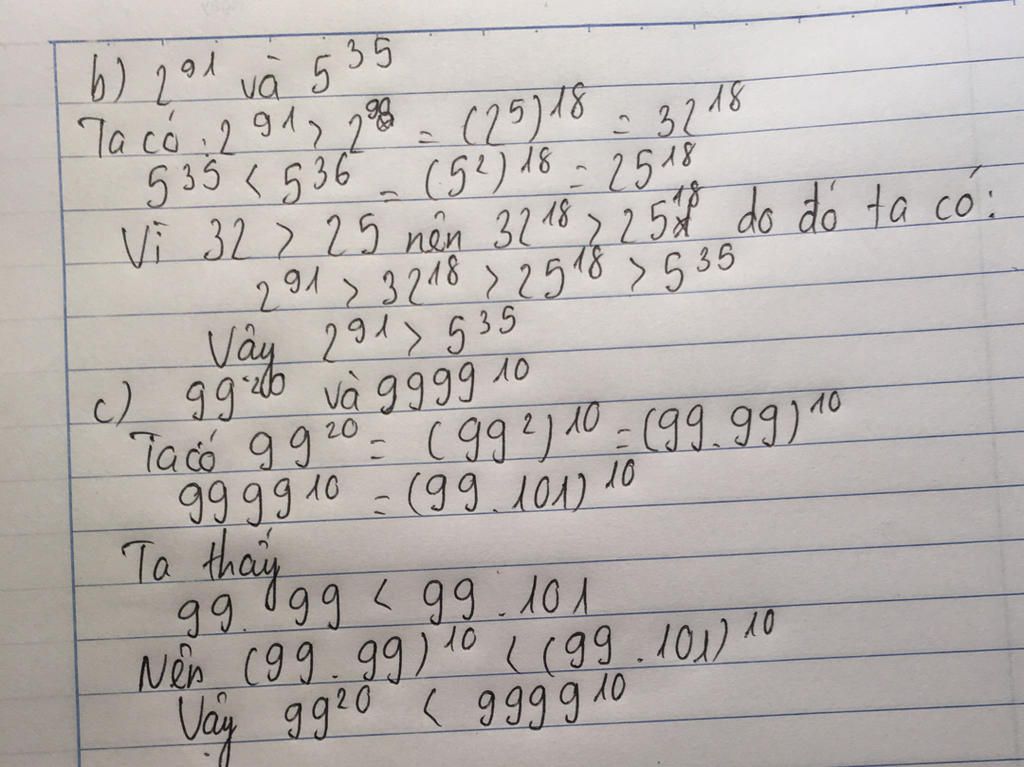 b) 2^91 và 5^35
Ta có: 2^91 > 2^90 = (2^5)^18 = 32^18
5^35 < 5^36 = (5^2)^18 = 25^18
Vì 32 > 25 nên 32^18 > 25^18 do đó ta có:
2^91 > 32^18 > 25^18 > 5^35
Vây 2^91 > 5^35
c) 99^20 và 9999^10
Ta có 99^20 = (99^2)^10 = (99.99)^10
9999^10 = (99.101)^10
Ta thấy
99.99 < 99.101
Nên (99.99)^10 < (99.101)^10
Vậy 99^20 < 9999^10